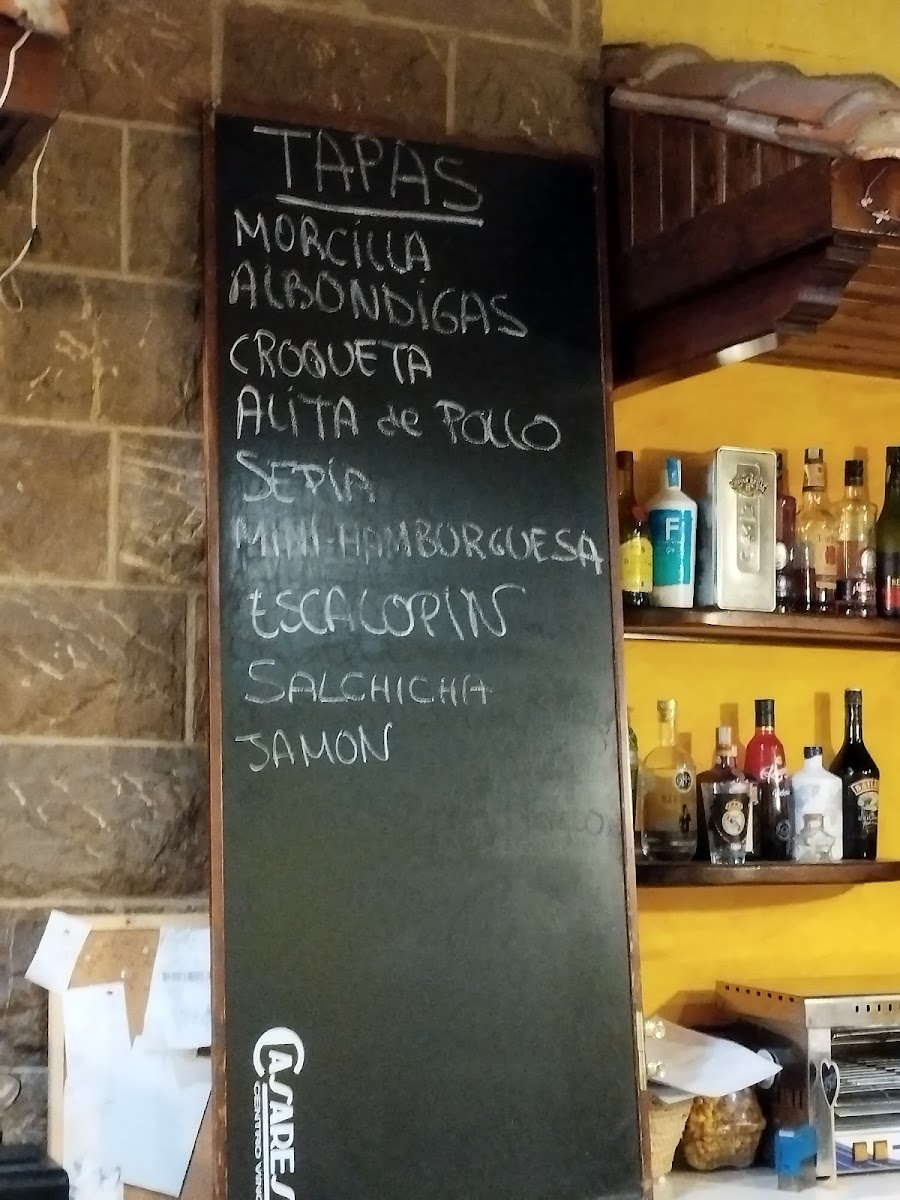 TAPAS
MORCILLA
ALBONDIGAS
CROQUETA
ALITA de POLLO
SEPIA
MINI HAMBURGUESA
ESCALOPIN
SALCHICHA
JAMON
CASARES
CENTRO
F
BAILEYS